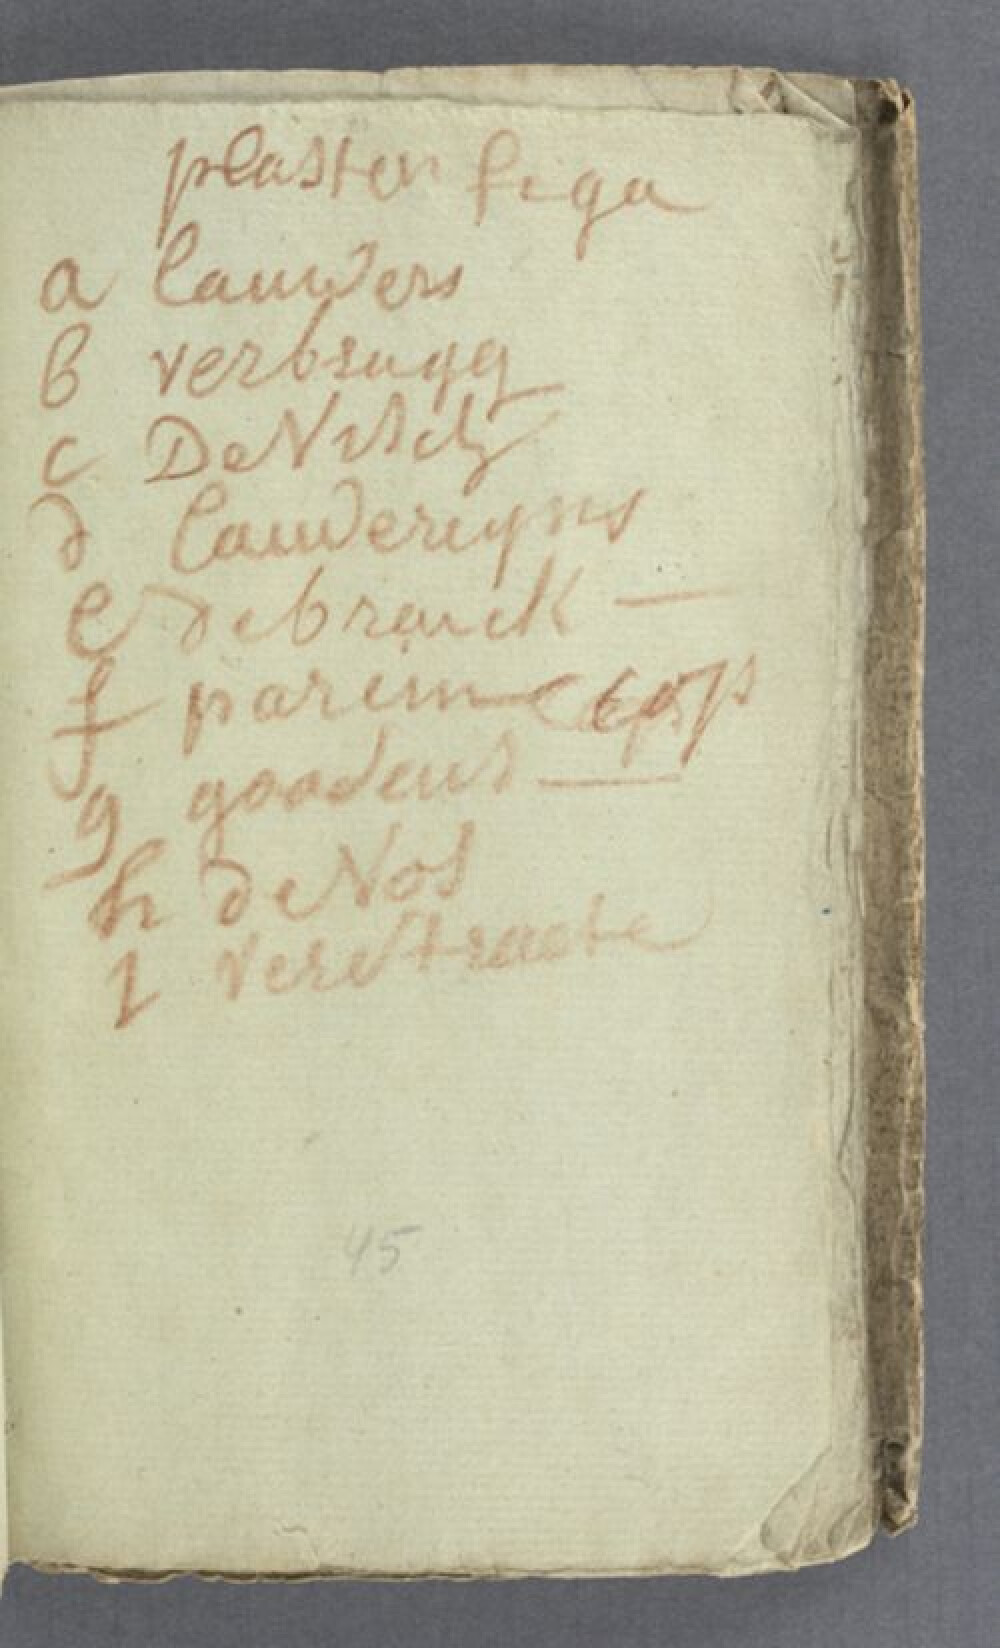 plasten figa
a lauwers
b verbrugg
c De Visch
d lauwereyns
e debrauck —
f parein
g goodens —
h de Vos
I verstraete
45